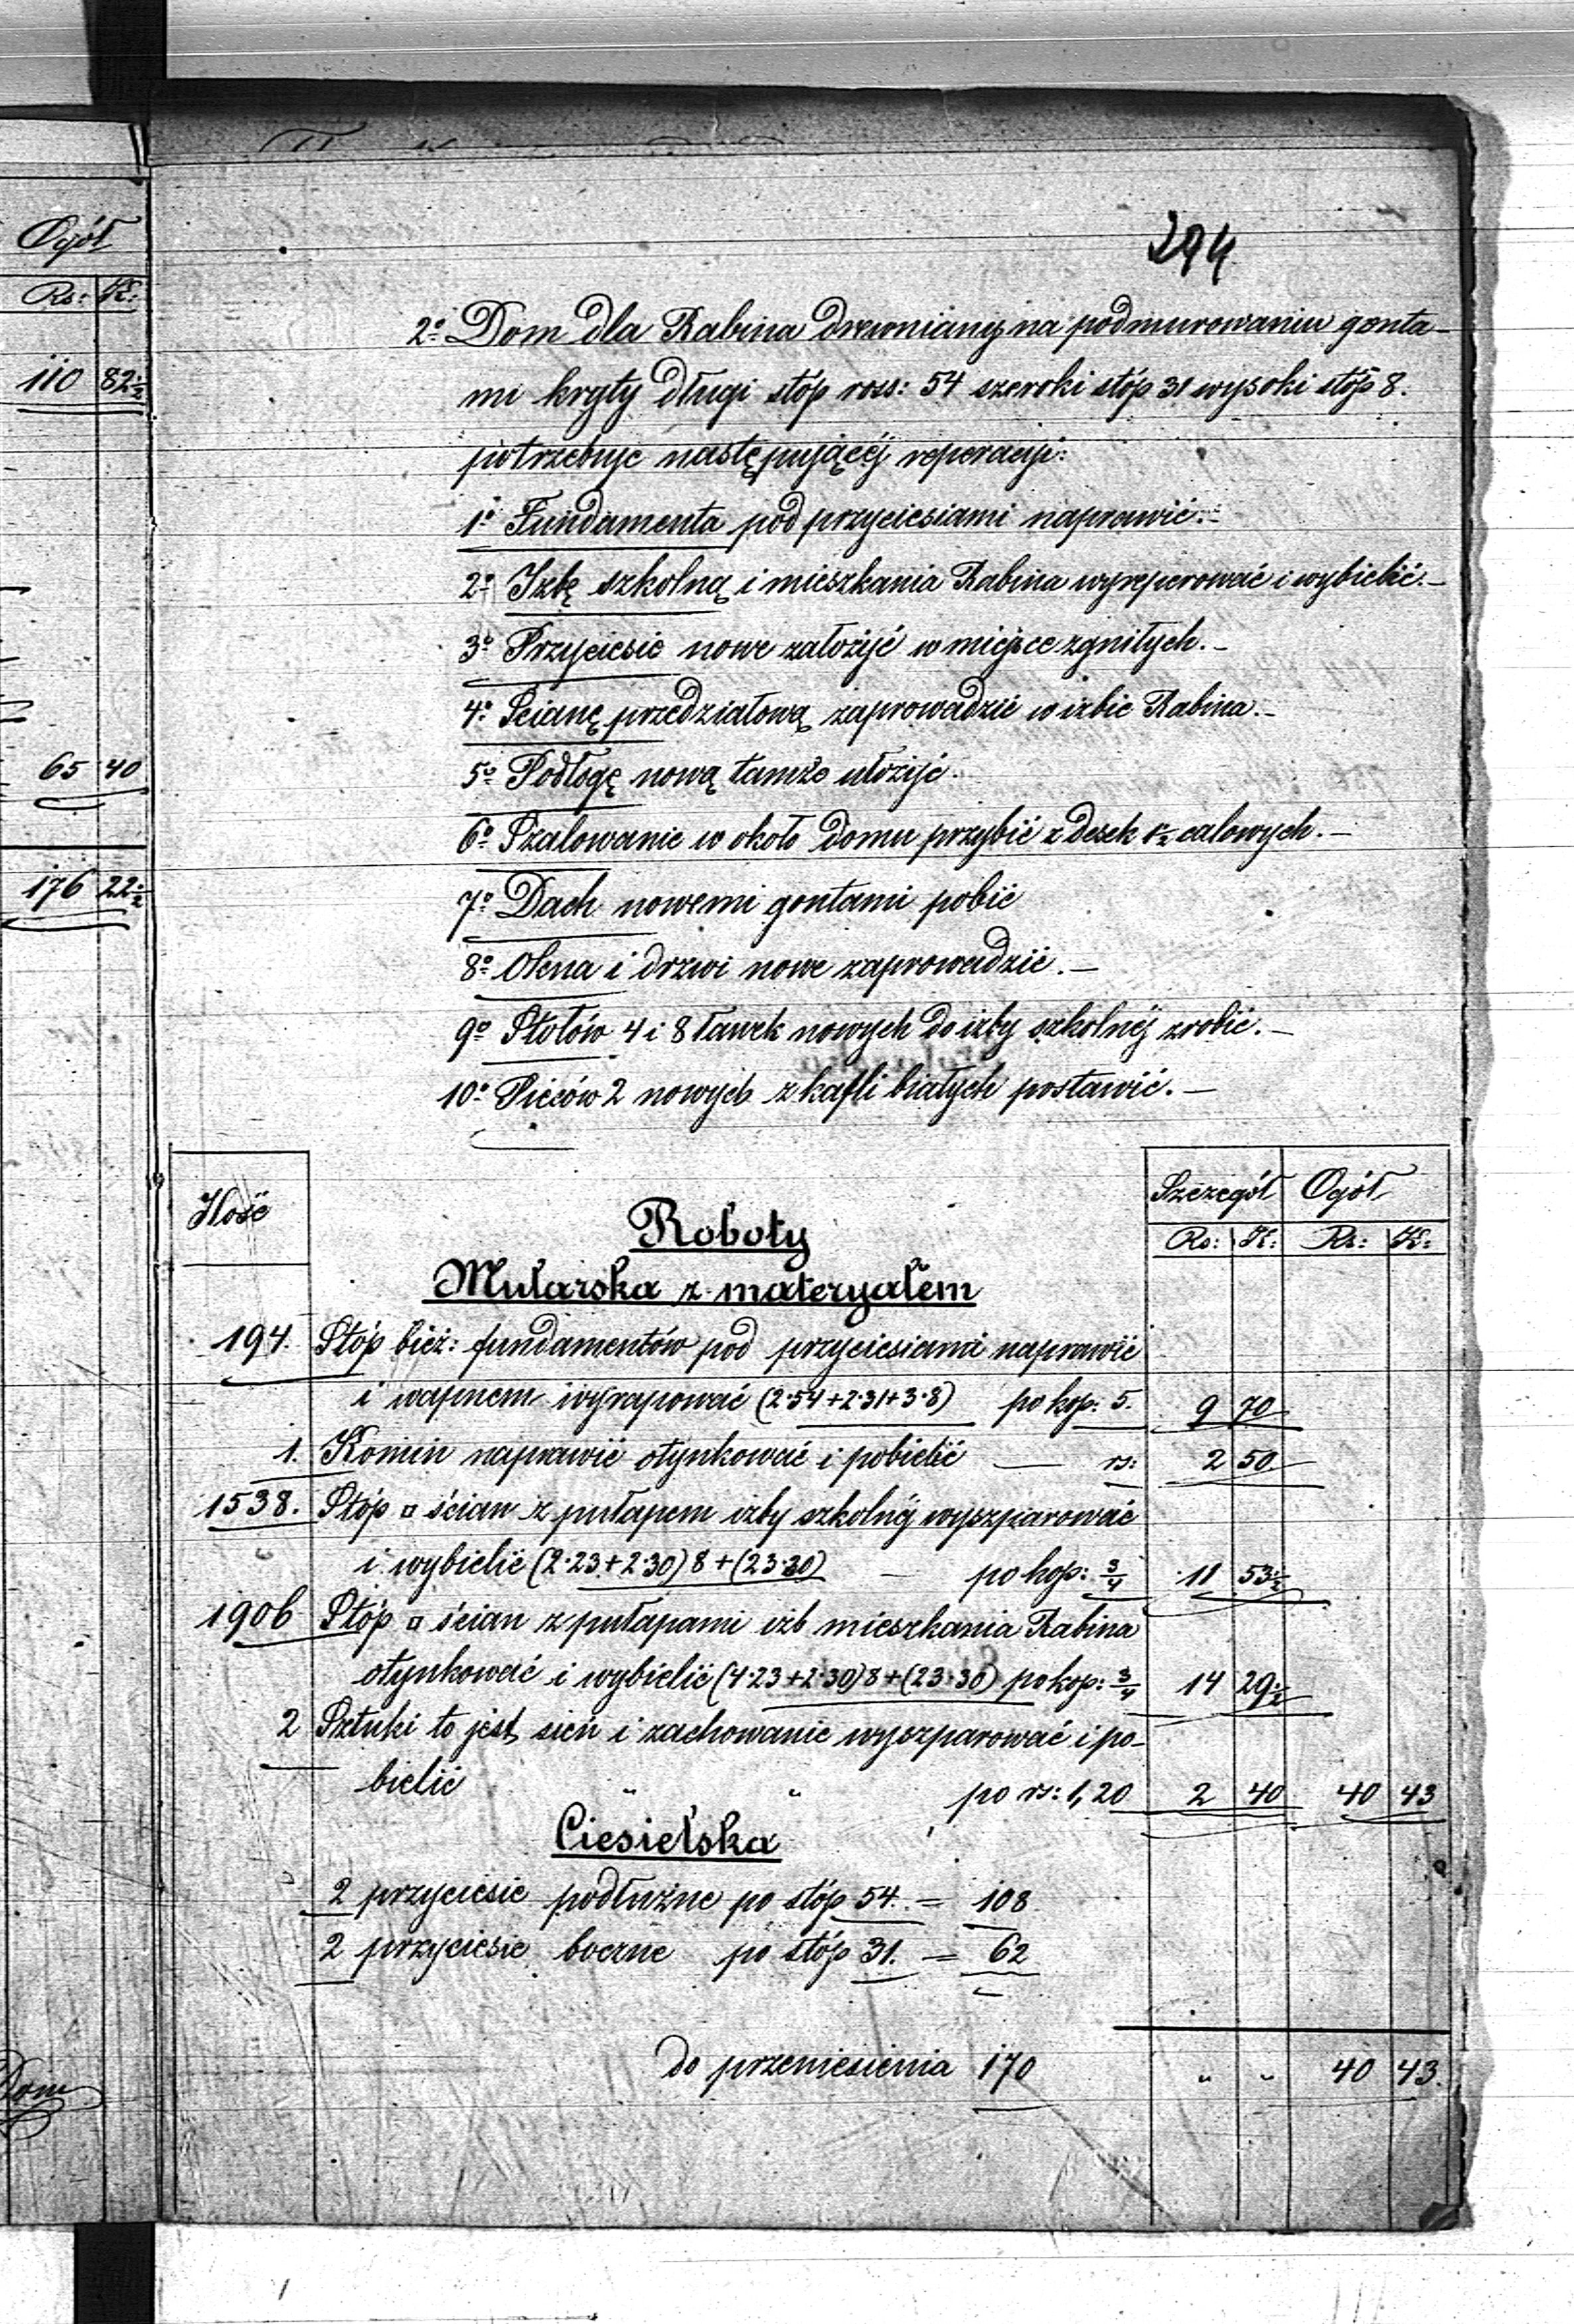 Ogół
Rs: K:
110 82½
65 40
176 22½
Dom
294
2o Dom dla Rabina drewniany na podmurowaniu gonta-
mi kryty długi stóp ross: 54 szeroki stóp 31 wysoki stóp 8.
potrzebuje następującéj reperacyi:
1o Fundamenta pod przyciesiami naprawić.-
2o Izbę szkolną i mieszkania Rabina wyreperować i wybielić.-
3o Przyciesie nowe założyć w miejsce zgniłych.-
4o Scianę przedziałową zaprowadzić w izbie Rabina.-
5o Podłogę nową tamże ułożyć.
6o Szalowanie w około domu przybić z desek calowych.-
7o Dach nowemi gontami pobić
8o Okna i drzwi nowe zaprowadzić.-
9o Stołów 4 i 8 ławek nowych do izby szkolnéj zrobić.-
10o Pieców 2 nowych z kafli białych postawić.-
Ilość Szczegół Ogół
Roboty Rs: K: Rs: K:
Mularska z materyałem
194. Stóp bież: fundamentów pod przyciesiami naprawić
i wapnem wyrapować (2·54+2·31+3·8) po kop: 5. 9 70
1. Komin naprawić otynkować i pobielić — rs: 2 50
1538. Stóp □ ścian z pułapem izby szkolnéj wyszparować
i wybielić (2·23+2·30)8+(23·30) — po kop: ¾ 11 53½
1906 Stóp □ ścian z pułapami izb mieszkania Rabina
otynkować i wybielić (4·23+2·30)8+(23·30) po kop: ¾ 14 29½
2 Sztuki to jest sień i zachowanie wyszparować i po-
bielić " " po rs: 1,20 2 40 40 43
Ciesielska
2 przyciesie podłużne po stóp 54. = 108
2 przyciesie boczne po stóp 31. = 62
do przeniesienia 170 " " 40 43.